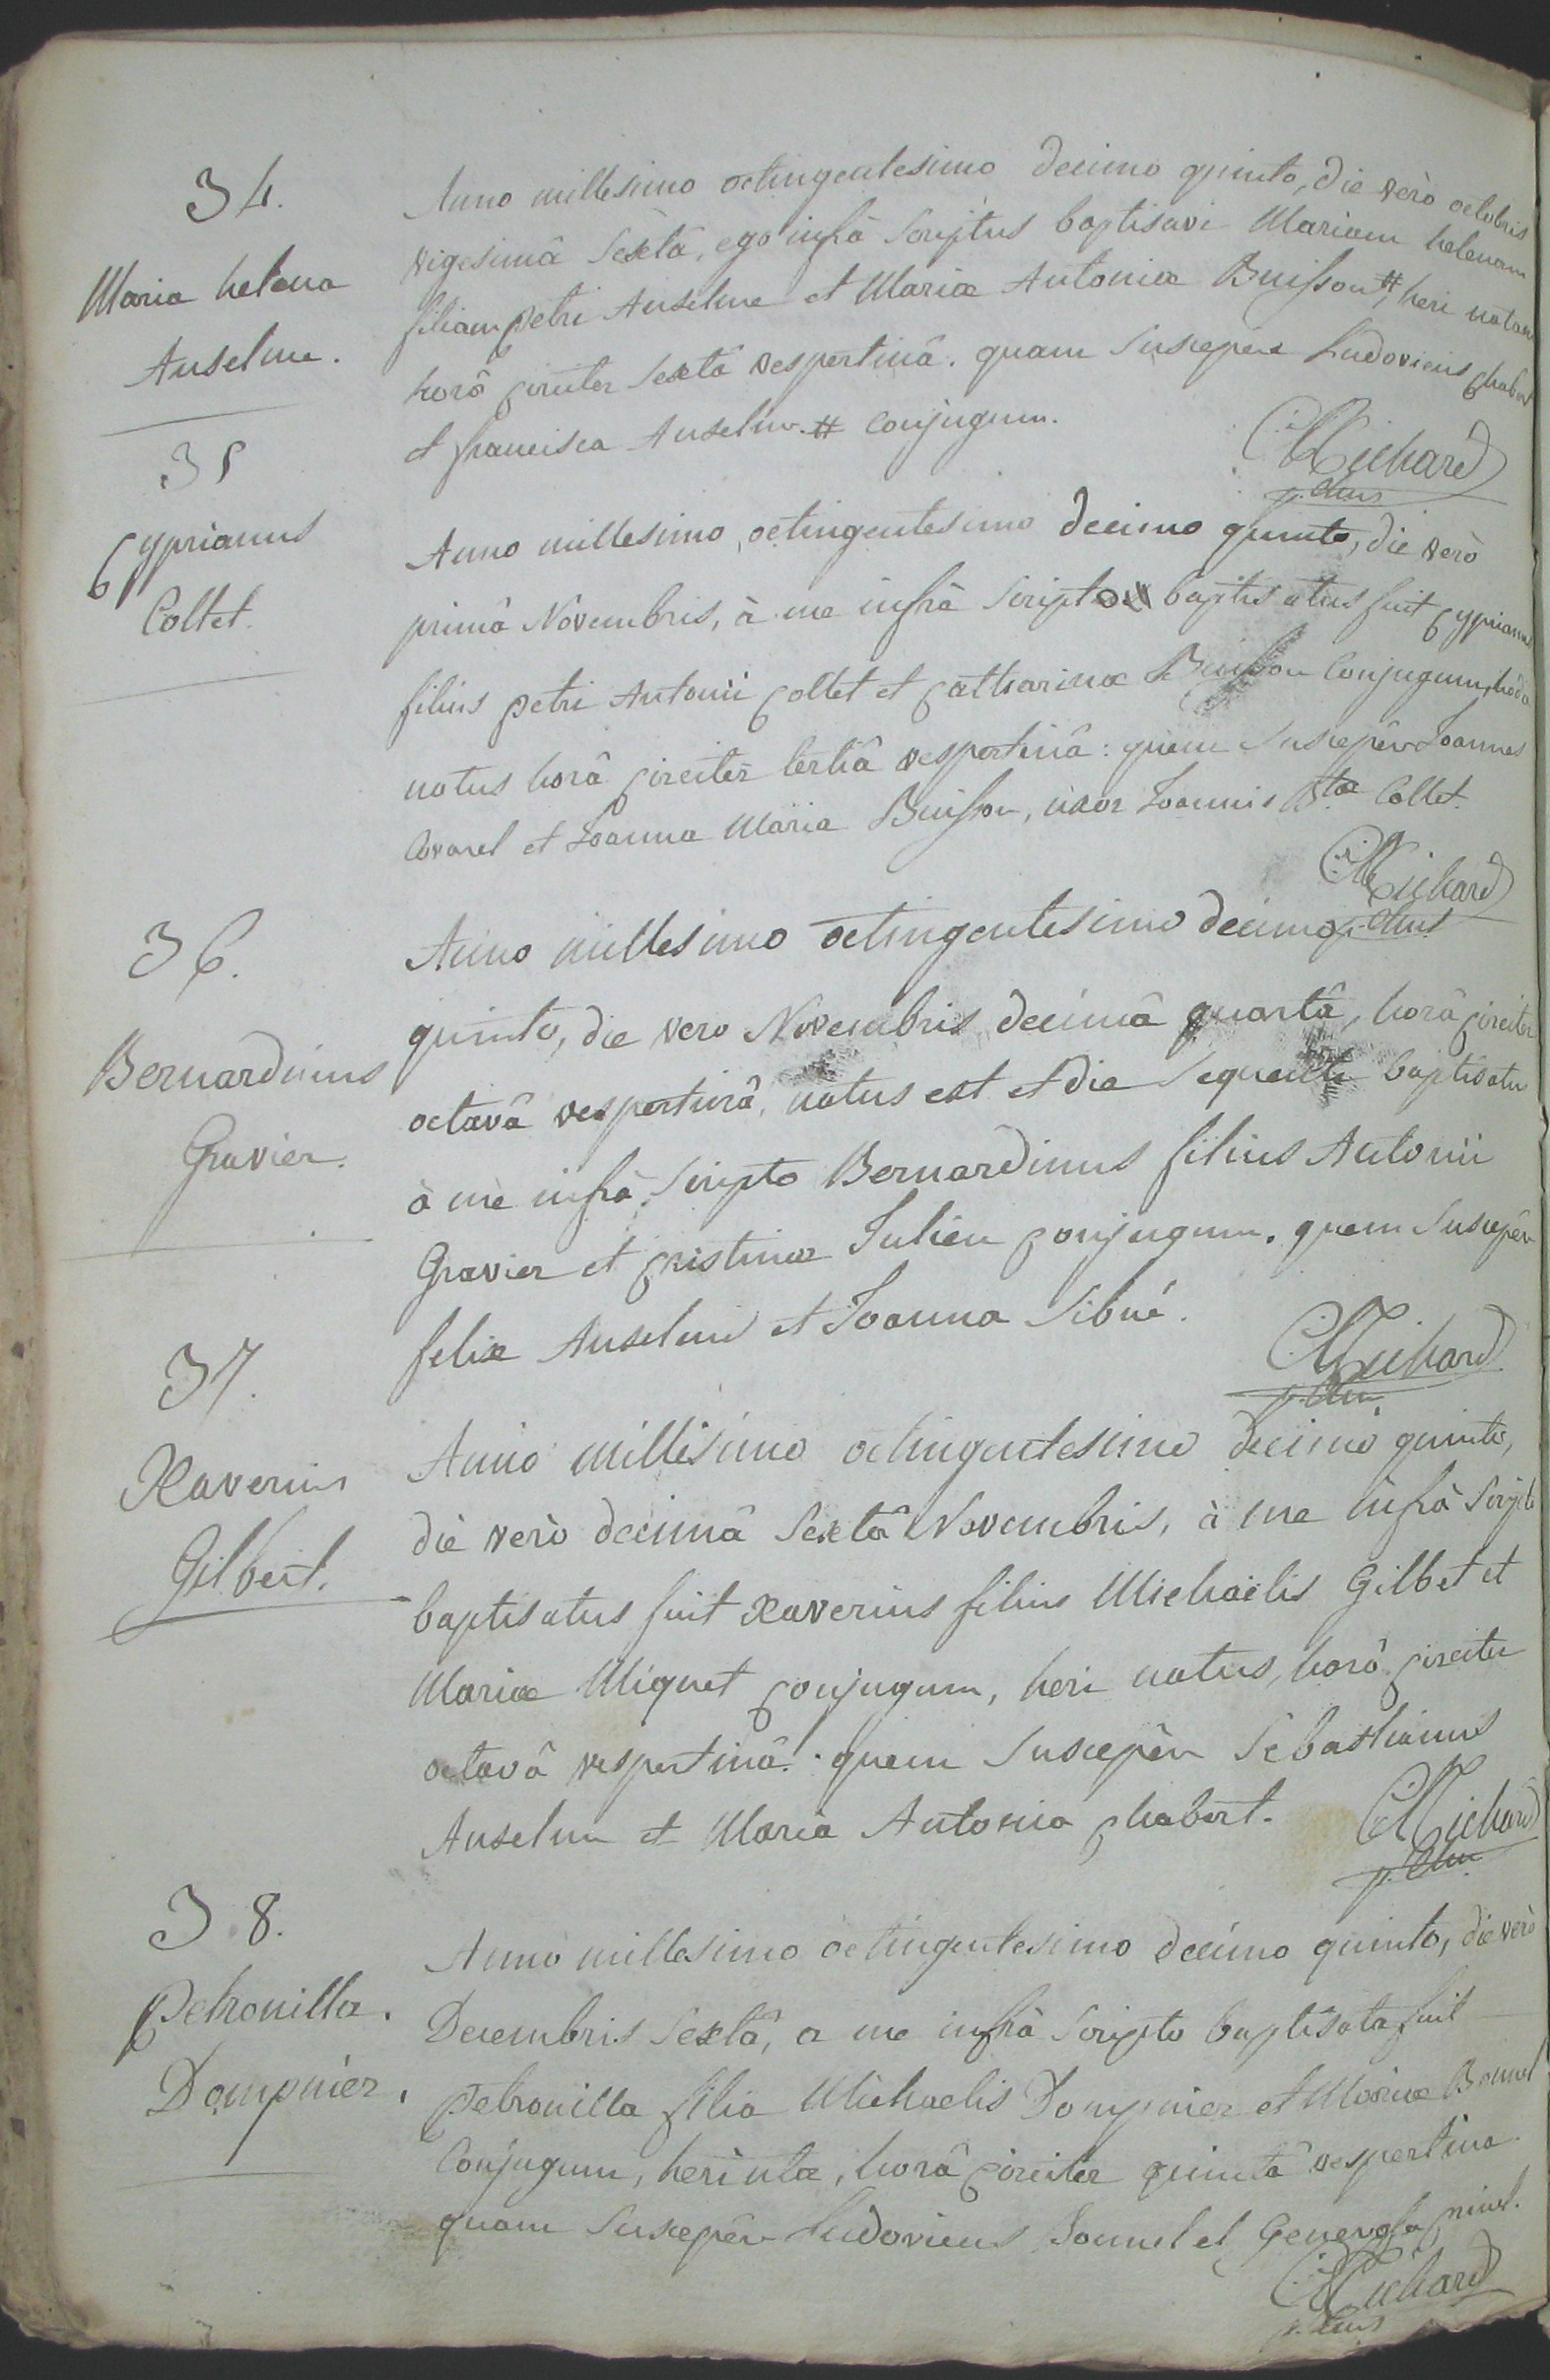 34.
Maria helena
Anselme.
Anno millesimo octingentesimo decimo quinto, die verò octobris
vigesimâ sextâ, ego infrà scriptus baptisavi Mariam helenam
filiam petri Anselme et Mariæ Antoniæ Buisson #, heri natam
horâ circiter sextâ vespertinâ. quam suscepere Ludovicus chabert
et francisca Anselme. # conjugum.
C. Richard
35
Cyprianus
Collet.
Anno millesimo octingentesimo decimo quinto, die verò
primâ Novembris, à me infrà scripto baptisatus fuit Cyprianus
filius petri Antonii Collet et Catharinæ Buisson conjugum, hodie
natus horâ circiter tertiâ vespertinâ: quem suscepêre Joannes
Covarel et Joanna Maria Buisson, uxor Joannis Btæ Collet.
C. Richard
36.
Bernardinus
Gravier.
Anno millesimo octingentesimo decimo
quinto, die vero Novembris decimâ quartâ, horâ circiter
octavâ vespertinâ, natus est et die sequenti baptisatus
à me infrà scripto Bernardinus filius Antonii
Gravier et Cristinæ Julien conjugum. quem suscepêre
felix Anselme et Joanna Sibué.
C. Richard
37.
Xaverius
Gilbert.
Anno millesimo octingentesimo decimo quinto,
die verò decimâ sextâ Novembris, à me infrà scripto
baptisatus fuit xaverius filius Michaëlis Gilbet et
Mariæ Miquet conjugum, heri natus, horâ circiter
octavâ vespertinâ. quem suscepêre Sebastianus
Anselme et Maria Antonia chabert.
C. Richard
38.
petronilla.
Dompnier.
Anno millesimo octingentesimo decimo quinto, die verò
Decembris sextâ, a me infrà scripto baptisata fuit
petronilla filia Michaelis Dompnier et Mariæ Bonnel
conjugum, heri natæ, horâ circiter quintâ vespertina
quam suscepêre Ludovicus Bonnel et Genevefa
C. Richard